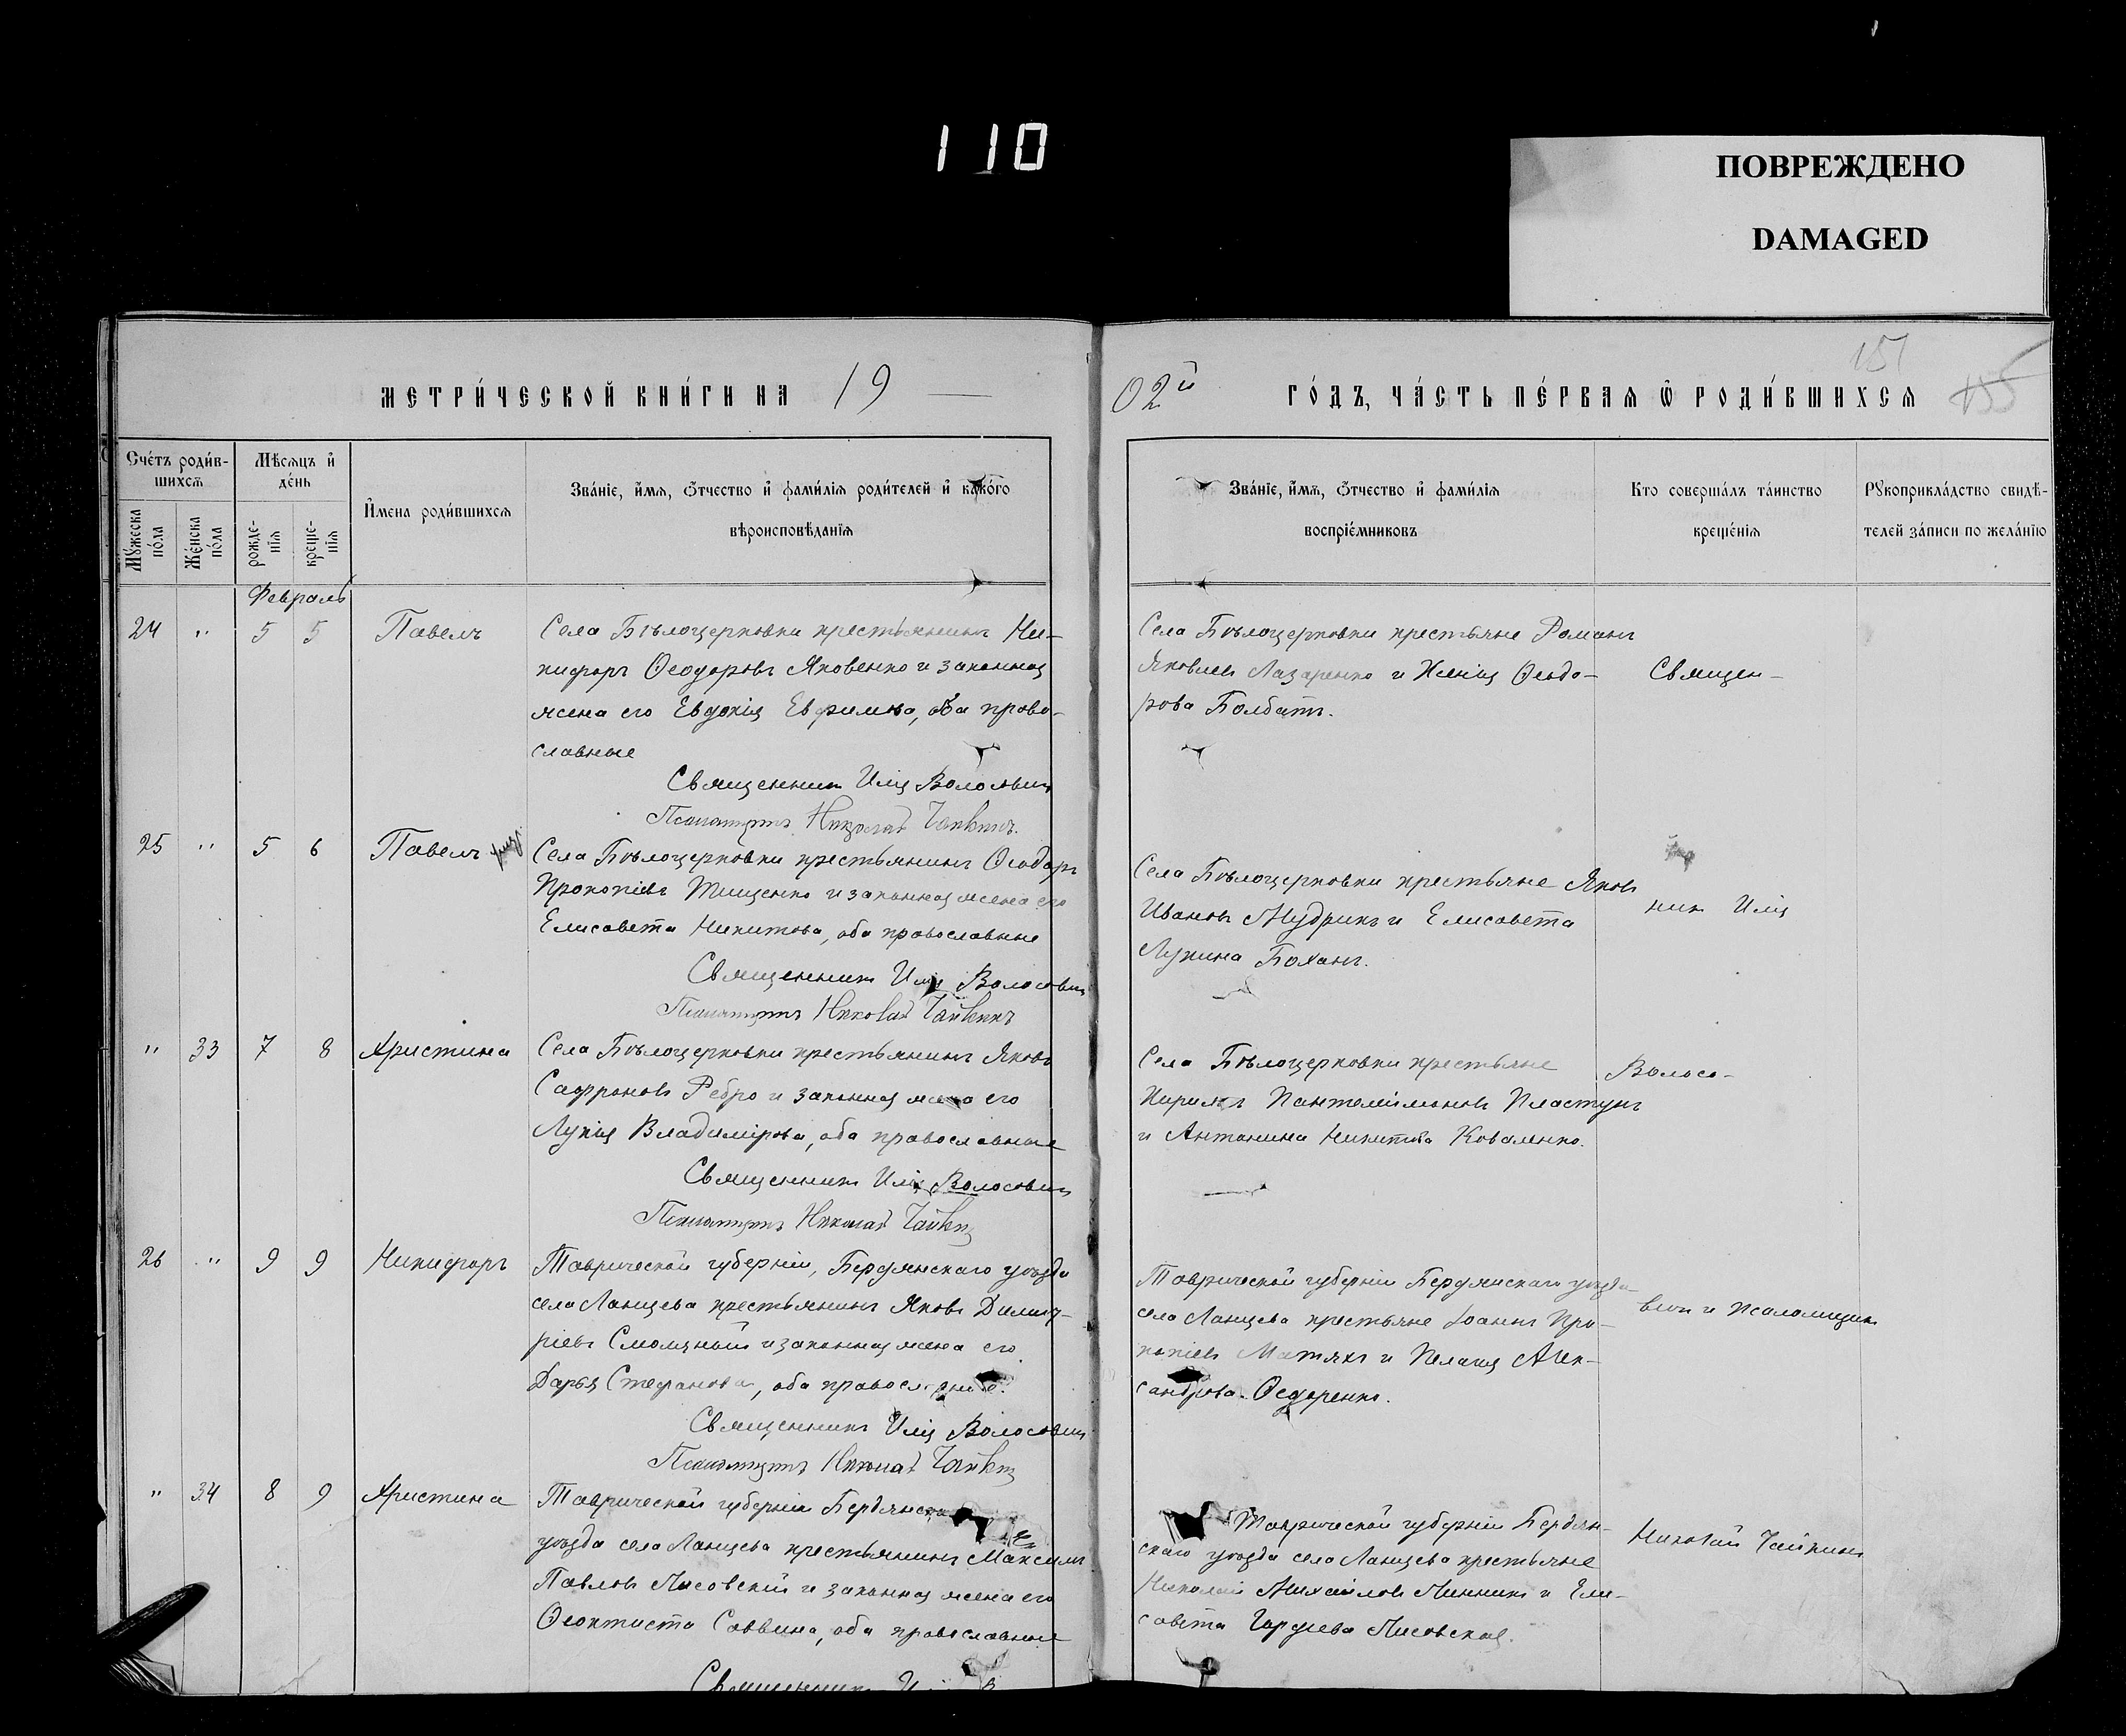 110
ПОВРЕЖДЕНО
DAMAGED
МЕТРИ́ЧЕСКОЙ КНИ́ГИ НА 19
02й ГО́ДЪ, ЧА́СТЬ ПЕ́РВАѦ Ѽ РОДИ́ВШИХСѦ
151
155
Сче́тъ роди́в-
шихсѧ
Мѣ́сѧцъ и҆
де́нь
Му́жеска
по́ла
Же́нска
по́ла
рожде-
нїѧ
креще-
нїѧ
И҆мена роди́вшихсѧ
Зва́нїе, и҆́мѧ, ѻ҆́тчество и҆ фами́лїѧ роди́телей и҆ како́гѡ
вѣроисповѣ́данїѧ
Зва́нїе, и҆́мѧ, ѻ҆́тчество и҆ фами́лїѧ
воспрїе́мниковъ
Кто соверша́лъ та́инство
креще́нїѧ
Рꙋкоприкла́дство свидѣ́-
телей за́писи по жела́нїю
Февраль
24 " 5 5 Павелъ
Села Бѣлоцерковки крестьянинъ Ни-
кифоръ Ѳеодоровъ Яковенко и законная
жена его Евдокія Евфимова, оба право-
славные
Священникъ Илія Волосовичъ
Псаломщикъ Николай Чайкинъ
Села Бѣлоцерковки крестьяне Романъ
Яковлевъ Лазаренко и Ксенія Ѳеодо-
рова Болбатъ.
Священ-
25 " 5 6 Павелъ
Села Бѣлоцерковки крестьянинъ Ѳеодоръ
Прокопіевъ Тищенко и законная жена его
Елисавета Никитова, оба православные
Священникъ Илія Волосовичъ
Псаломщикъ Николай Чайкинъ
Села Бѣлоцерковки крестьяне Яковъ
Ивановъ Мудрикъ и Елисавета
Лукина Боханъ.
никъ Илія
" 33 7 8 Христина
Села Бѣлоцерковки крестьянинъ Яковъ
Сафроновъ Ребро и законная жена его
Лукія Владимірова, оба православные
Священникъ Илія Волосовичъ
Псаломщикъ Николай Чайкинъ
Села Бѣлоцерковки крестьяне
Кириллъ Пантелеимоновъ Пластунъ
и Антонина Никитова Коваленко.
Волосо-
26 " 9 9 Никифоръ
Таврической губерніи, Бердянскаго уѣзда
села Ланцева крестьянинъ Яковъ Димит-
ріевъ Смоляный и законная жена его
Дарья Стефанова, оба православные.
Священникъ Илія Волосовичъ
Псаломщикъ Николай Чайкинъ
Таврической губерніи Бердянскаго уѣзда
села Ланцева крестьяне Іоаннъ Про-
копіевъ Матяхъ и Пелагія Алек-
сандрова Ѳедоренко.
вичъ и псаломщикъ
" 34 8 9 Христина
Таврической губерніи Бердянска
уѣзда села Ланцева крестьянинъ Максимъ
Павловъ Лисовскій и законная жена его
Ѳеоктиста Саввина, оба православные
Священникъ И
Таврической губерніи Бердян-
скаго уѣзда села Ланцева крестьяне
Николай Михайловъ Линникъ и Ели-
савета Гордеева Лисовская.
Николай Чайкинъ